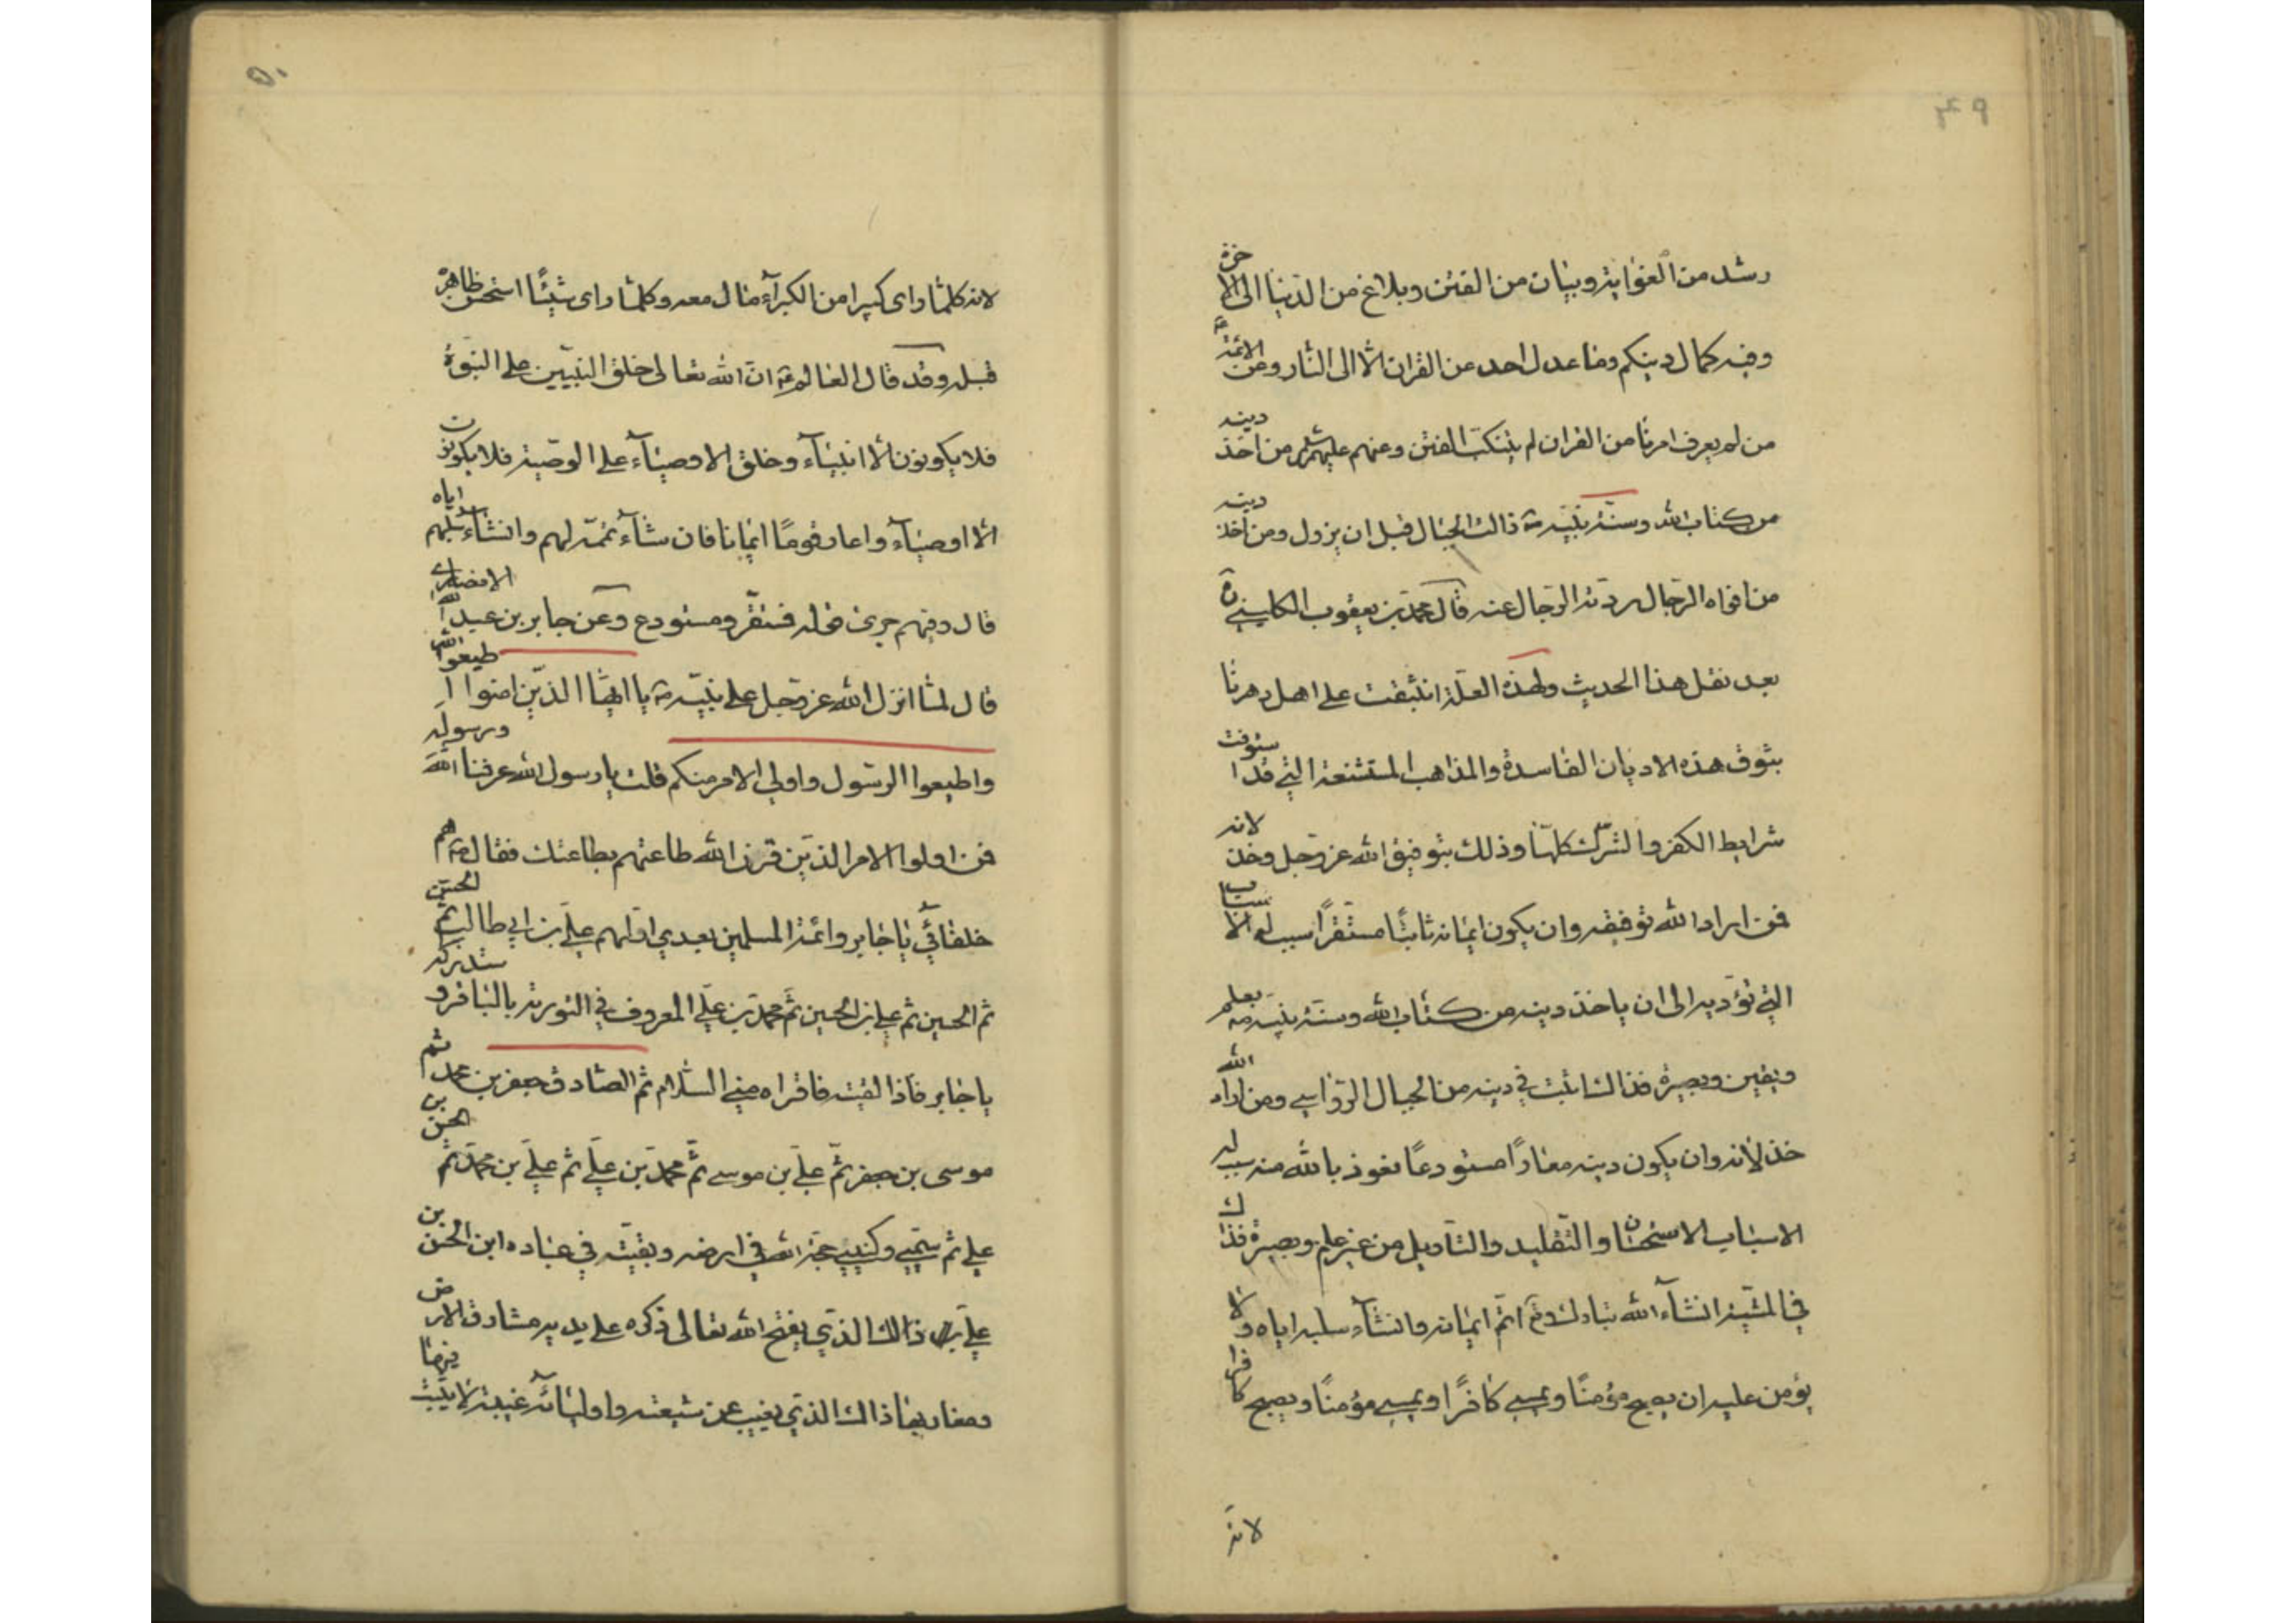 ۴۹
رشد من الغوایة وبیان من الفتن وبلاغ من الدنیا الی الاخرة
وفیه کمال دینکم وما عدل احد من القران الا الی النار وعن الائمة
من لم یعرف امرنا من القران لم یتنکب الفتن وعنهم علیهم من اخذ دینه
من کتاب الله وسنة نبیه ص زالت الجبال قبل ان یزول ومن اخذ دینه
من افواه الرجال ردته الرجال عنه قال محمد بن یعقوب الکلینی ره
بعد نقل هذا الحدیث ولهذه العلة انبثقت علی اهل دهرنا
بثوق هذه الادیان الفاسدة والمذاهب المستشنعة التی قد استوفت
شرایط الکفر والشرک کلها وذلک بتوفیق الله عز وجل وخذلانه
فمن اراد الله توفیقه وان یکون ایمانه ثابتا مستقرا سبب له الاسباب
التی تؤدیه الی ان یاخذ دینه من کتاب الله وسنة نبیه ص بعلم
ویقین وبصیرة فذالک اثبت فی دینه من الجبال الرواسی ومن اراد الله
خذلانه وان یکون دینه معارا مستودعا نعوذ بالله منه سبب له
الاسباب الاستحسان والتقلید والتاویل من غیر علم وبصیرة فذاک
فی المشیة انشآء الله تبارک وتع اتم ایمانه وانشآء سلبه ایاه ولا
یؤمن علیه ان یصبح مؤمنا ویمسی کافرا او یمسی مؤمنا ویصبح کافرا
لانه
۵۰
لانه کلما رای کبیرا من الکبرآء مال معه وکلما رای شیئا استحسن ظاهره
قبله وقد قال العالم ع ان الله تعالی خلق النبیین علی النبوة
فلا یکونون الا انبیآء وخلق الاوصیآء علی الوصیة فلا یکونون
الا اوصیآء واعار قوما ایمانا فان شآء تممه لهم وانشآء سلبهم ایاه
قال وفیهم جری قوله فمستقر ومستودع وعن جابر بن عبد الله الانصاری
قال لما انزل الله عز وجل علی نبیه ص یا ایها الذین امنوا اطیعوا الله
واطیعوا الرسول واولی الامر منکم قلت یا رسول الله عرفنا الله ورسوله
فمن اولوا الامر الذین قرن الله طاعتهم بطاعتک فقال ص هم
خلفائی یا جابر وائمة المسلمین بعدی اولهم علی بن ابی طالب ثم الحسن
ثم الحسین ثم علی بن الحسین ثم محمد بن علی المعروف فی التوریة بالباقر وستدرکه
یا جابر فاذا لقیته فاقراه منی السلام ثم الصادق جعفر بن محمد ثم
موسی بن جعفر ثم علی بن موسی ثم محمد بن علی ثم علی بن محمد ثم الحسن بن
علی ثم سمیی وکنیی حجة الله فی ارضه وبقیته فی عباده ابن الحسن بن
علی ذالک الذی یفتح الله تعالی ذکره علی یدیه مشارق الارض
ومغاربها ذالک الذی یغیب عن شیعته واولیائه غیبة لا یثبت فیها